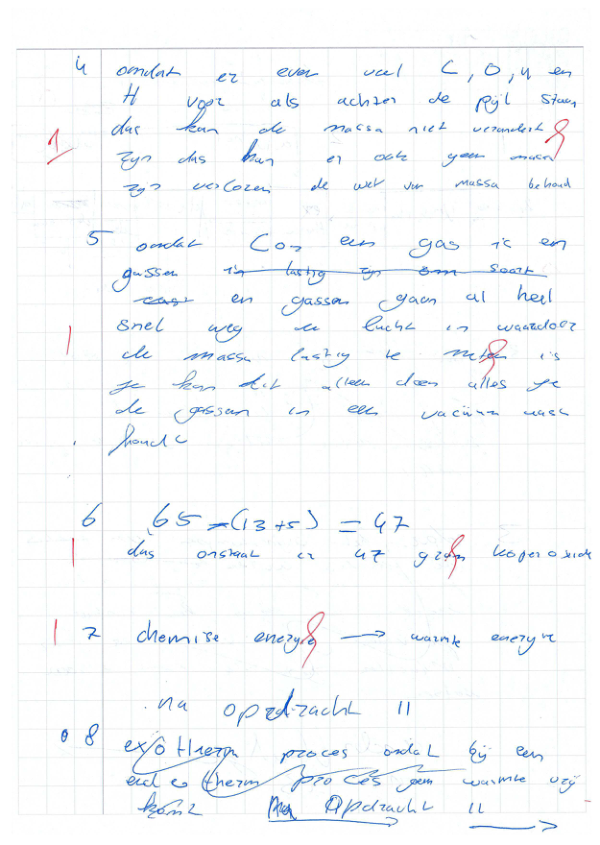 4 omdat er even veel C, O, u en
H voor als achter de pijl staan
dus kan de massa niet verandert
1 zijn dus kan er ook geen massa
zijn verloren de wet van massa behoud
5 omdat CO2 een gas is en
gassen is lastig zijn om soort
en gassen gaan al heel
snel weg de lucht in waardoor
1 de massa lastig te meten is
je kan dit alleen doen alles je
de gassen in een vacuüm
houdt
6 65 - (13 + 5) = 47
1 dus onstaat er 47 gram koperoxide
1 7 chemise energye → warmte energye
na opdracht 11
0 8 exotherm proces omdat bij een
endotherm proces geen warmte vrij
komt Na Opdracht 11 →